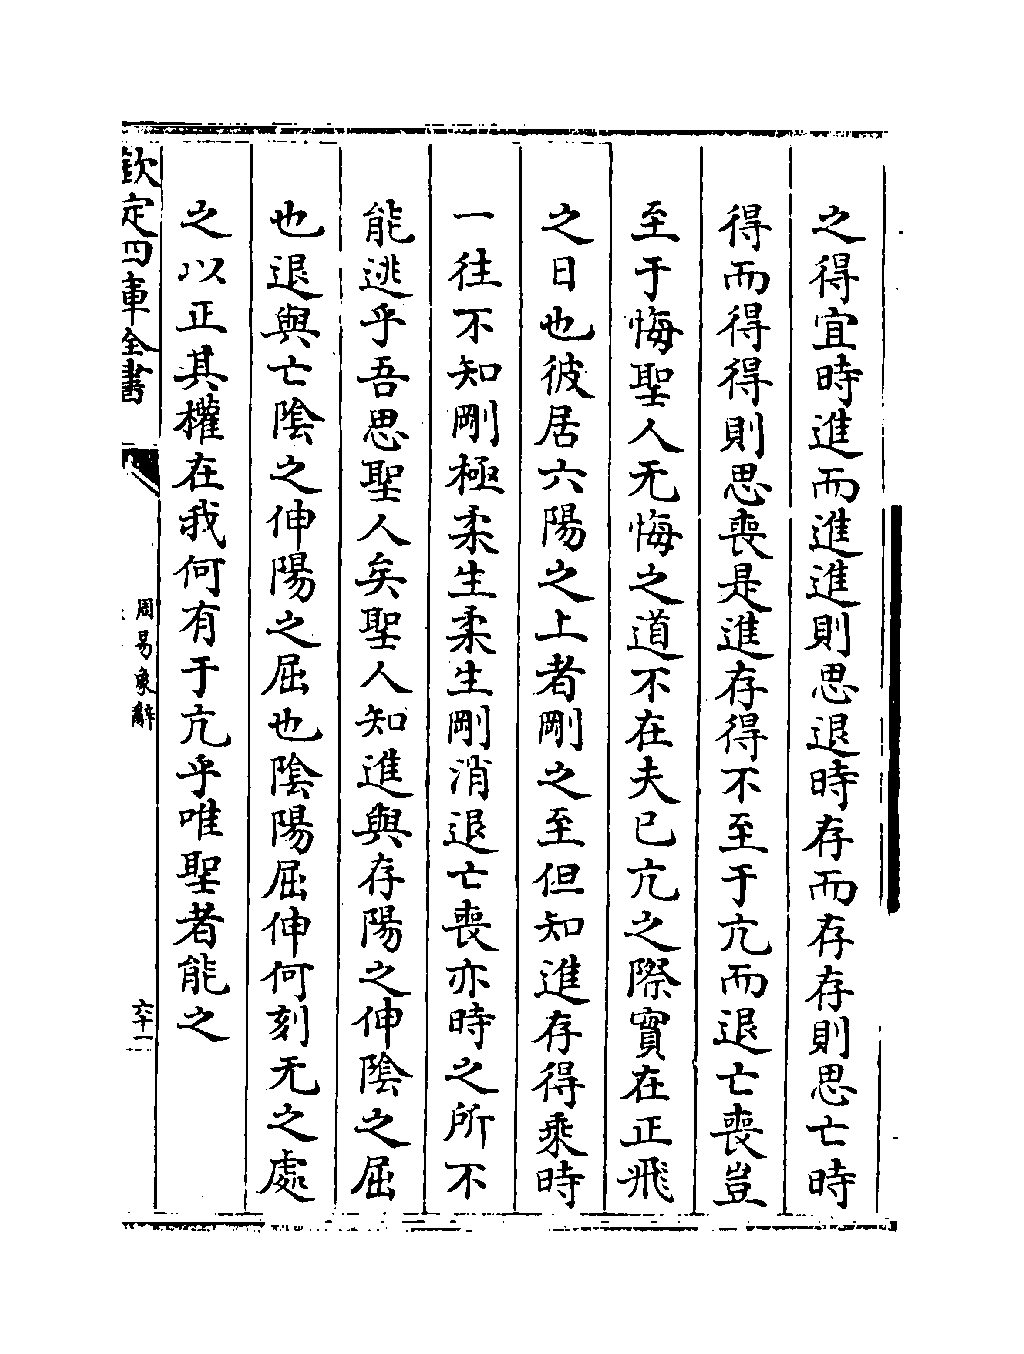 之得宜時進而進進則思退時存而存存則思亡時
得而得得則思喪是進存得不至于亢而退亡喪豈
至于悔聖人无悔之道不在夫已亢之際實在正飛
之日也彼居六陽之上者剛之至但知進存得乘時
一往不知剛極柔生柔生剛消退亡喪亦時之所不
能逃乎吾思聖人矣聖人知進與存陽之伸陰之屈
也退與亡陰之伸陽之屈也陰陽屈伸何刻无之處
之以正其權在我何有于亢乎唯聖者能之
欽定四庫全書
周易象辭
六十一